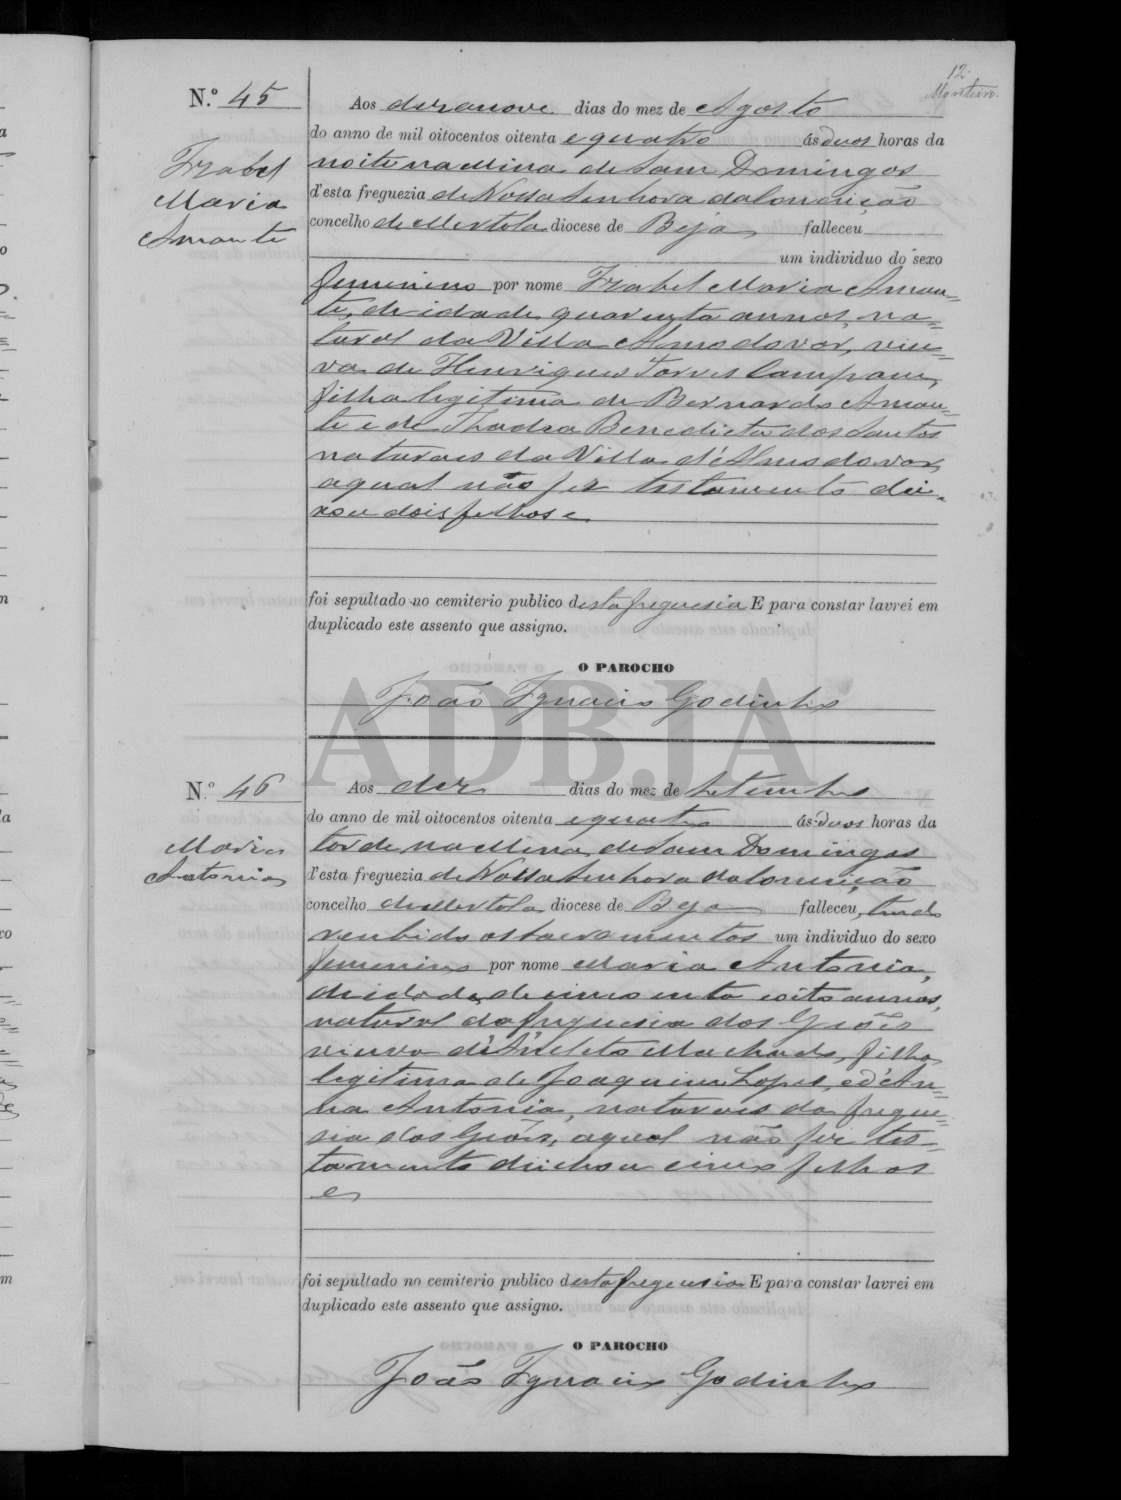 12
Monteiro
N.º 45
Izabel
Maria
Amante
Aos dezanove dias do mez de Agosto
do anno de mil oitocentos oitenta e quatro ás duas horas da
noite na Mina de Sam Domingos
d'esta freguezia de Nossa Senhora da Conceição
concelho de Mertola diocese de Beja falleceu
um individuo do sexo
femenino por nome Izabel Maria Aman=
te, de idade quarenta annos, na=
tural da Villa Almodovar, viu=
va de Henrique Torres Campane,
filha legitima de Bernardo Aman=
te e de Thadea Benedicta dos Santos
naturaes da Villa d'Almodovar,
a qual não fez testamento dei-
xou dois filhos e
foi sepultado no cemiterio publico desta freguesia E para constar lavrei em
duplicado este assento que assigno.
O PAROCHO
João Ignacio Godinho
ADBJA
N.º 46
Maria
Antonia
Aos dez dias do mez de Setembro
do anno de mil oitocentos oitenta e quatro ás duas horas da
tarde na Mina de Sam Domingos
d'esta freguezia de Nossa Senhora da Conceição
concelho de Mertola diocese de Beja falleceu, tendo
recebido os sacramentos um individuo do sexo
femenino por nome Maria Antonia,
de idade de cincoenta e oito annos,
natural da freguesia dos Giões
viuva d'Anicleto Machado, filha
legitima de Joaquim Lopes, e d'An=
na Antonia, naturaes da fregue=
sia dos Giões, a qual não fez tes=
tamento deichou cinco filhos
e
foi sepultado no cemiterio publico desta freguesia E para constar lavrei em
duplicado este assento que assigno.
O PAROCHO
João Ignacio Godinho